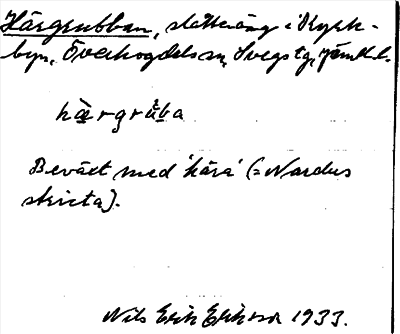 Härgrubban, slåtteräng i Kyrk-
byn, Överhogdals sn, Svegs tg, Jämtl. l.
hä̀rgrúb̥a
Beväxt med 'hárá' (= Nardus
stricta).
Nils Erik Eriksson 1933.